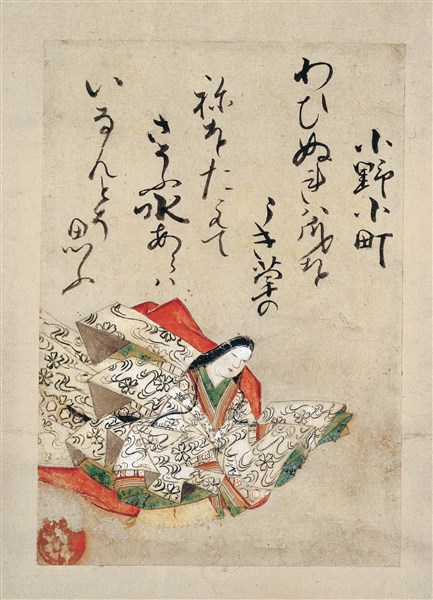 小野小町
わひぬれハ身を
うき草の
祢をたえて
さそふ水あらハ
いなんとそ思ふ